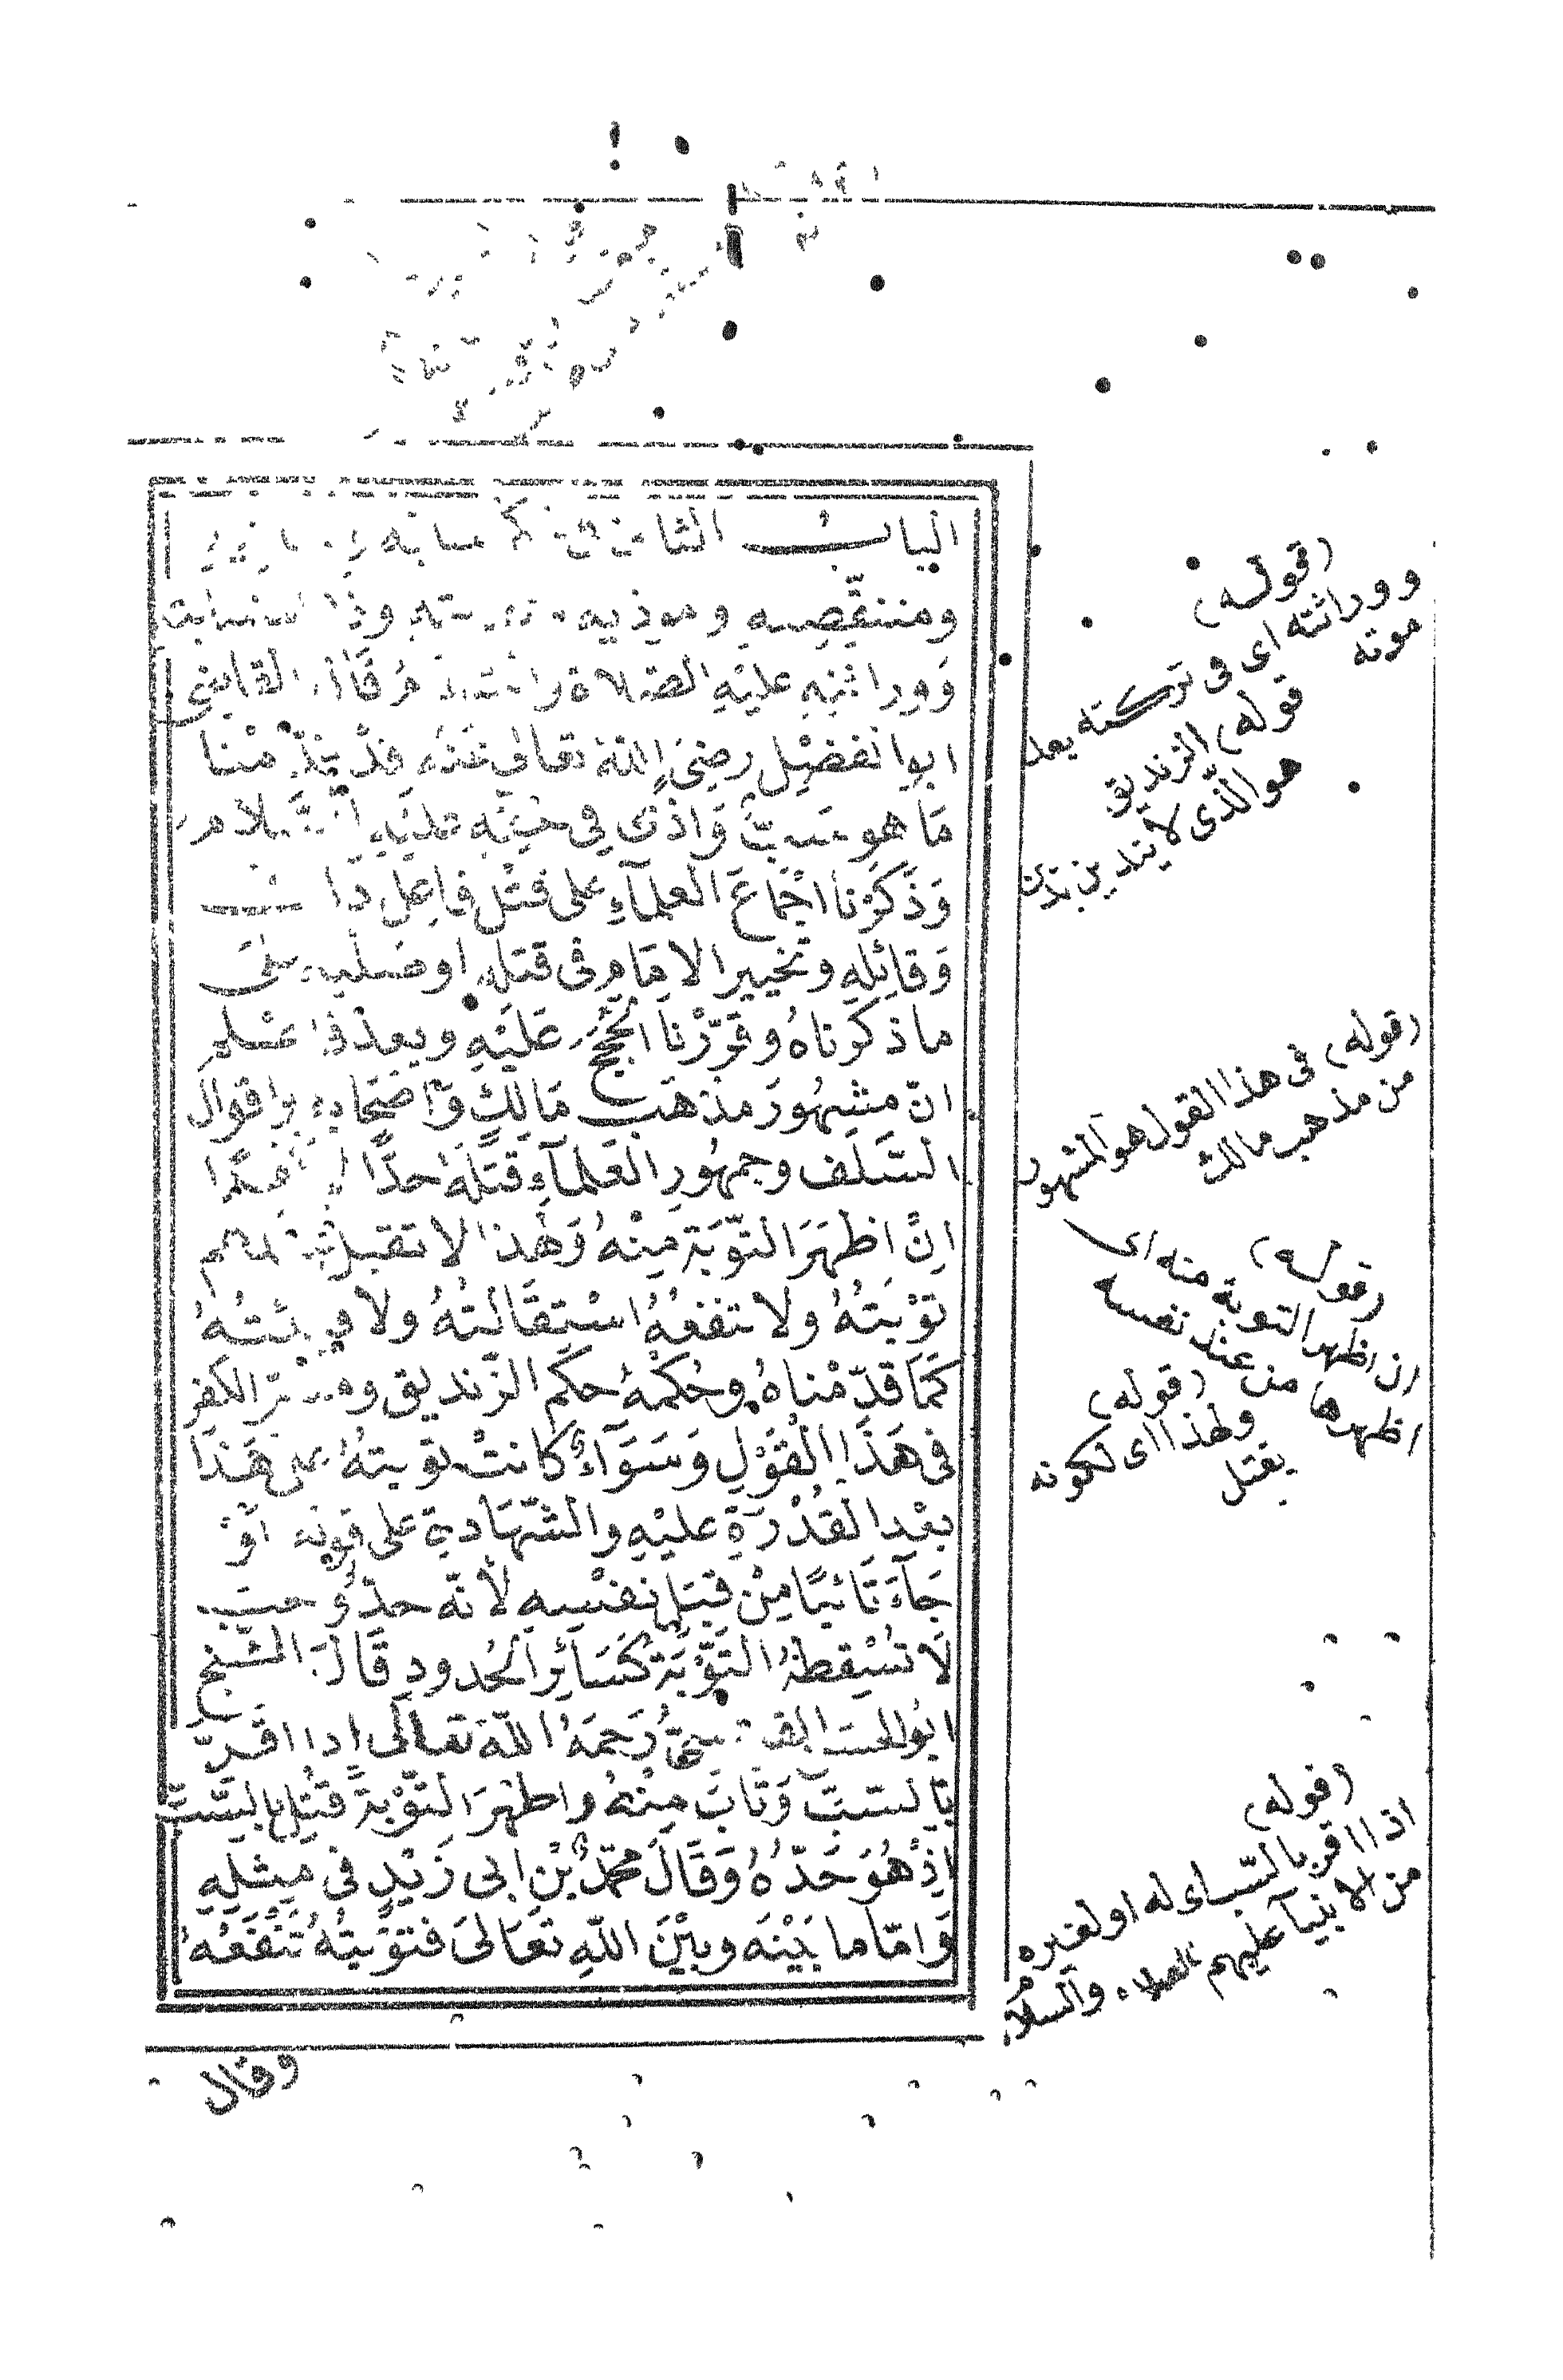 البابُ الثانى فى حكم سابه
ومنتقّصه وموذيه وذ
وَوراثته عليْه الصّلاة قَالَ القاضى
ابوا لفضْل رضىَ اللّه تعالى عنه قدْ منا
مَا هو سبّ وَاذى فى حقه عليه السّلام
وَذَكَرْنا اجْمَاعَ العلمآءِ على قتْل فاعل ذا
وَقائِلِه وتخيير الامَام فى قتله اوصلبه على
ما ذكرناهُ وقرّرْنا الحجَجَ عَليْهِ وبعدْ فاعْلم
انّ مشهُورَ مذهَب مَالِكٍ وَاصْحابه واقوال
السَّلف وجمهُورِ العُلمآءِ قتْلهُ حدًّا لا كفرا
اِنْ اظهَرَ التّوبَة مِنْهُ وَلهذا لا تقبل عندهم
توْبَتهُ ولا تنفعهُ اسْتِقَالَتهُ ولا فيئتهُ
كَمَا قدّمْناهُ وحُكمهُ حكم الزّنديق ومسرّ الكفر
فى هَذَا القَوْلِ وَسَوَآءٌ كانتْ توبتهُ على هَذَا
بعْد القُدْرَةِ عليْهِ والشّهَادةِ على قوْله اوْ
جَآءَ تَائبًا مِنْ قبَل نفْسِهِ لأنّه حدّ وجبَ
لَا تُسْقِطهُ التَّوْبَة كَسَائِر الحُدودِ قَالَ الشّيخ
ابُو الحسن القابسىّ رَحِمَهُ اللّه تعالَى اِذا اقَرّ
بالسّبّ وَتابَ مِنْهُ واظهرَ التّوْبة قُتِل بالسَّبّ
اِذْ هُوَ حَدّهُ وَقالَ محمّدُ بْنِ ابى زَيْدٍ فى مِثلِهِ
وَامّا ما بَيْنَه وبيْنَ اللّهِ تعَالىَ فتوْبتُهُ تَنْفَعُهُ
وقال
(قوله)
ووراثته اى فى تركته بعد
موته
قوله) الزنديق
هو الّذى لا يتدين بدين
(قوله) فى هذا القول هو المشهور
من مذهب مالك
(قوله)
ان اظهر التوبة منه اى
اظهرها من عند نفسه
(قوله)
ولهذا اى لكونه
يقتل
(قوله)
اذا اقر بالسّب اى له او لغيره
من الانبيآ عليهم الصلاة والسلام